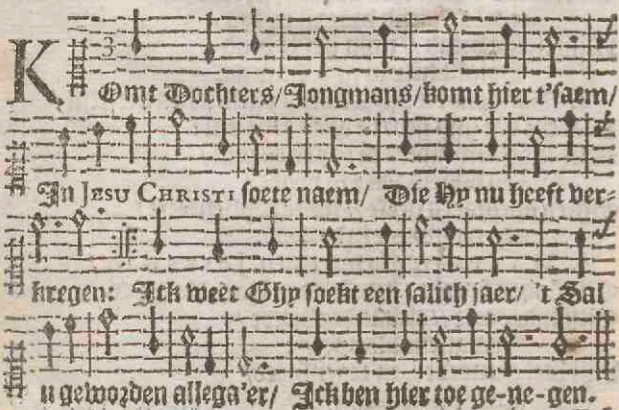 KOmt Dochters/Jongmans/komt hier t'saem/
In JESU CHRISTI soete naem/ Die Hy nu heeft ver-
kregen: Ick weet Ghy soekt een salich jaer/ 't Sal
u geworden allega'er/ Ick ben hier toe ge-ne-gen.